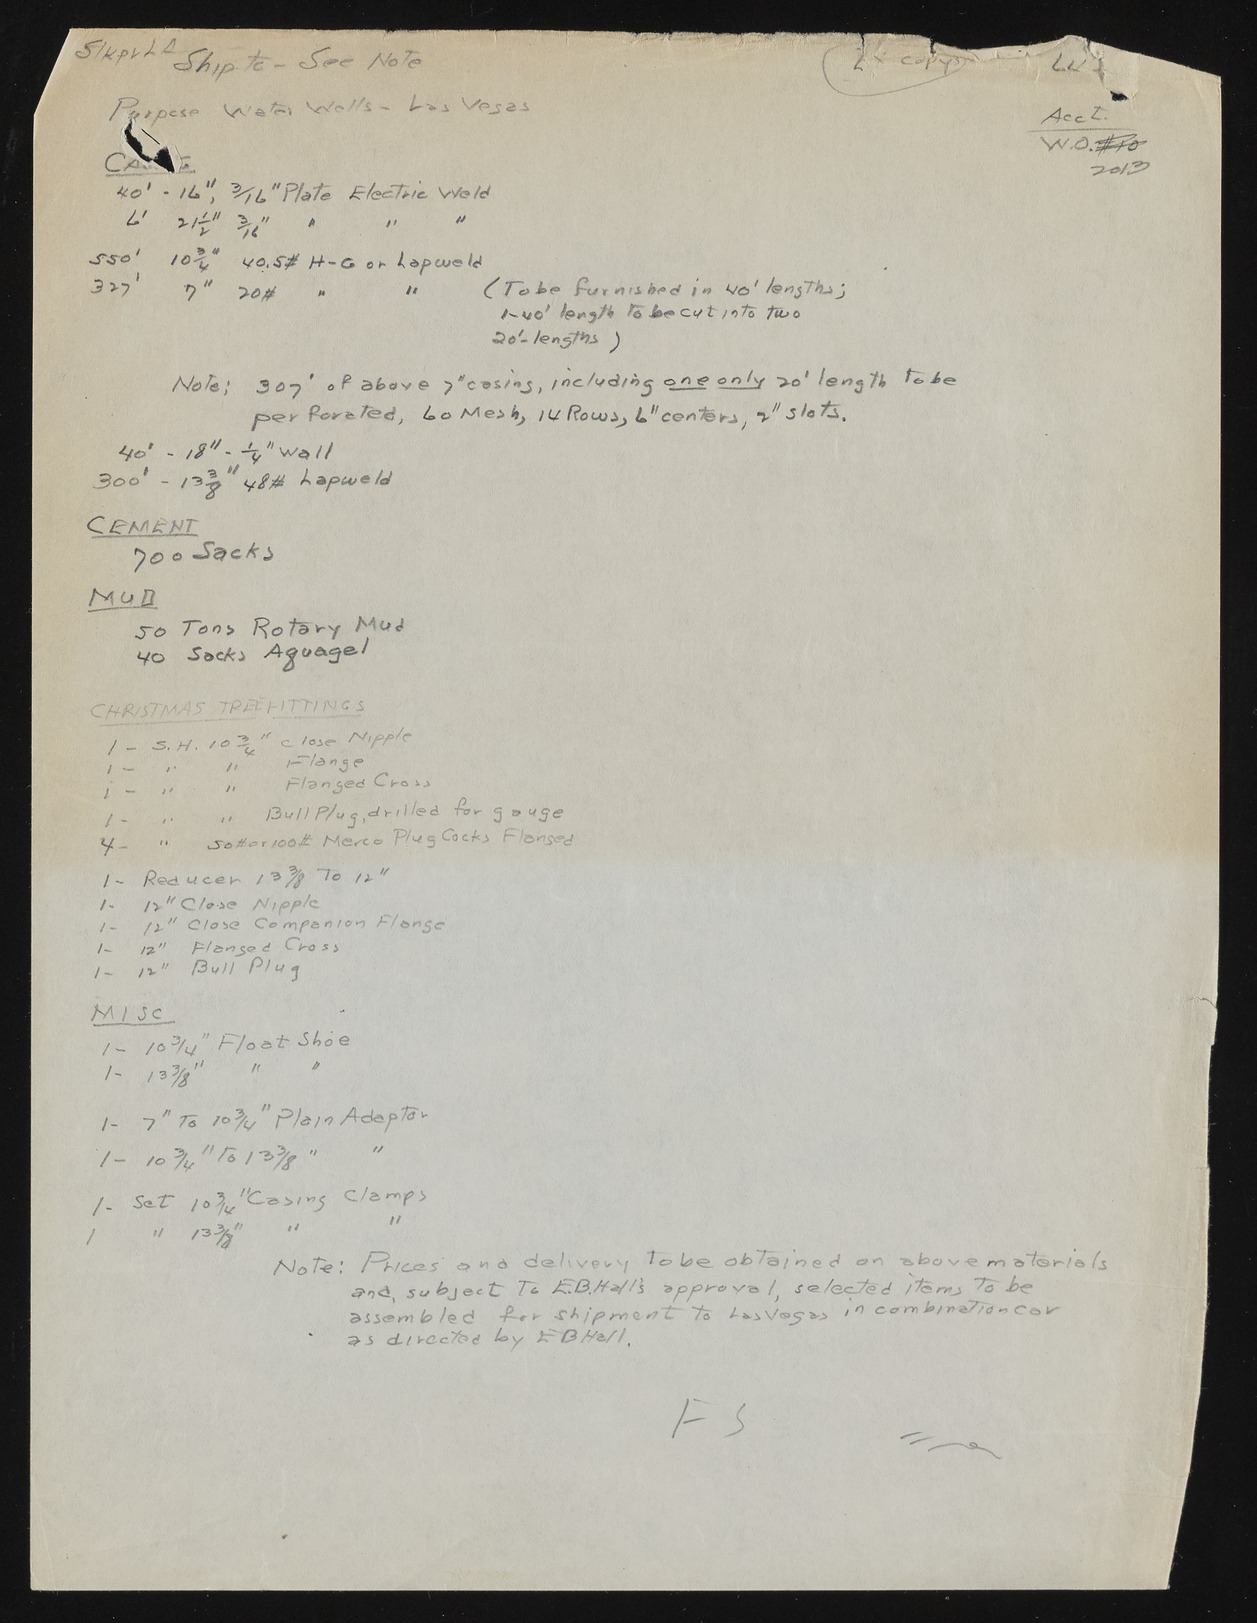 Ship to - See Note
copys
Purpose Water Wells - Las Vegas
Acct.
W.O. #10
2013
40' - 16", 3/16" Plate Electric Weld
6' 21½" 3/16" " " "
550' 10¾" 40.5# H-G or Lapweld
327' 7" 20# " " (To be furnished in 40' lengths;
1-40' length to be cut into two
20'-lengths)
Note: 307' of above 7" casing, including one only 20' length to be
perforated, 60 Mesh, 14 Rows, 6" centers, 2" slots.
40' - 18" - ¼" wall
300' - 13⅜" 48# Lapweld
CEMENT
700 Sacks
MUD
50 Tons Rotary Mud
40 Sacks Aquagel
CHRISTMAS TREE FITTINGS
1 - S.H. 10¾" close Nipple
1 - " " Flange
1 - " " Flanged Cross
1 - " " Bull Plug, drilled for gauge
4 - " 50# or 100# Merco Plug Cocks Flanged
1 - Reducer 13⅜ To 12"
1 - 12" Close Nipple
1 - 12" Close Companion Flange
1 - 12" Flanged Cross
1 - 12" Bull Plug
MISC
1 - 10¾" Float Shoe
1 - 13⅜" " "
1 - 7" To 10¾" Plain Adaptor
1 - 10¾" To 13⅜ " "
1 - Set 10¾" Casing Clamps
1 " 13⅜" " "
Note: Prices and delivery to be obtained on above materials
and, subject To E.B. Hall's approval, selected items To be
assembled for shipment To Las Vegas in combination car
as directed by E B Hall.
F S